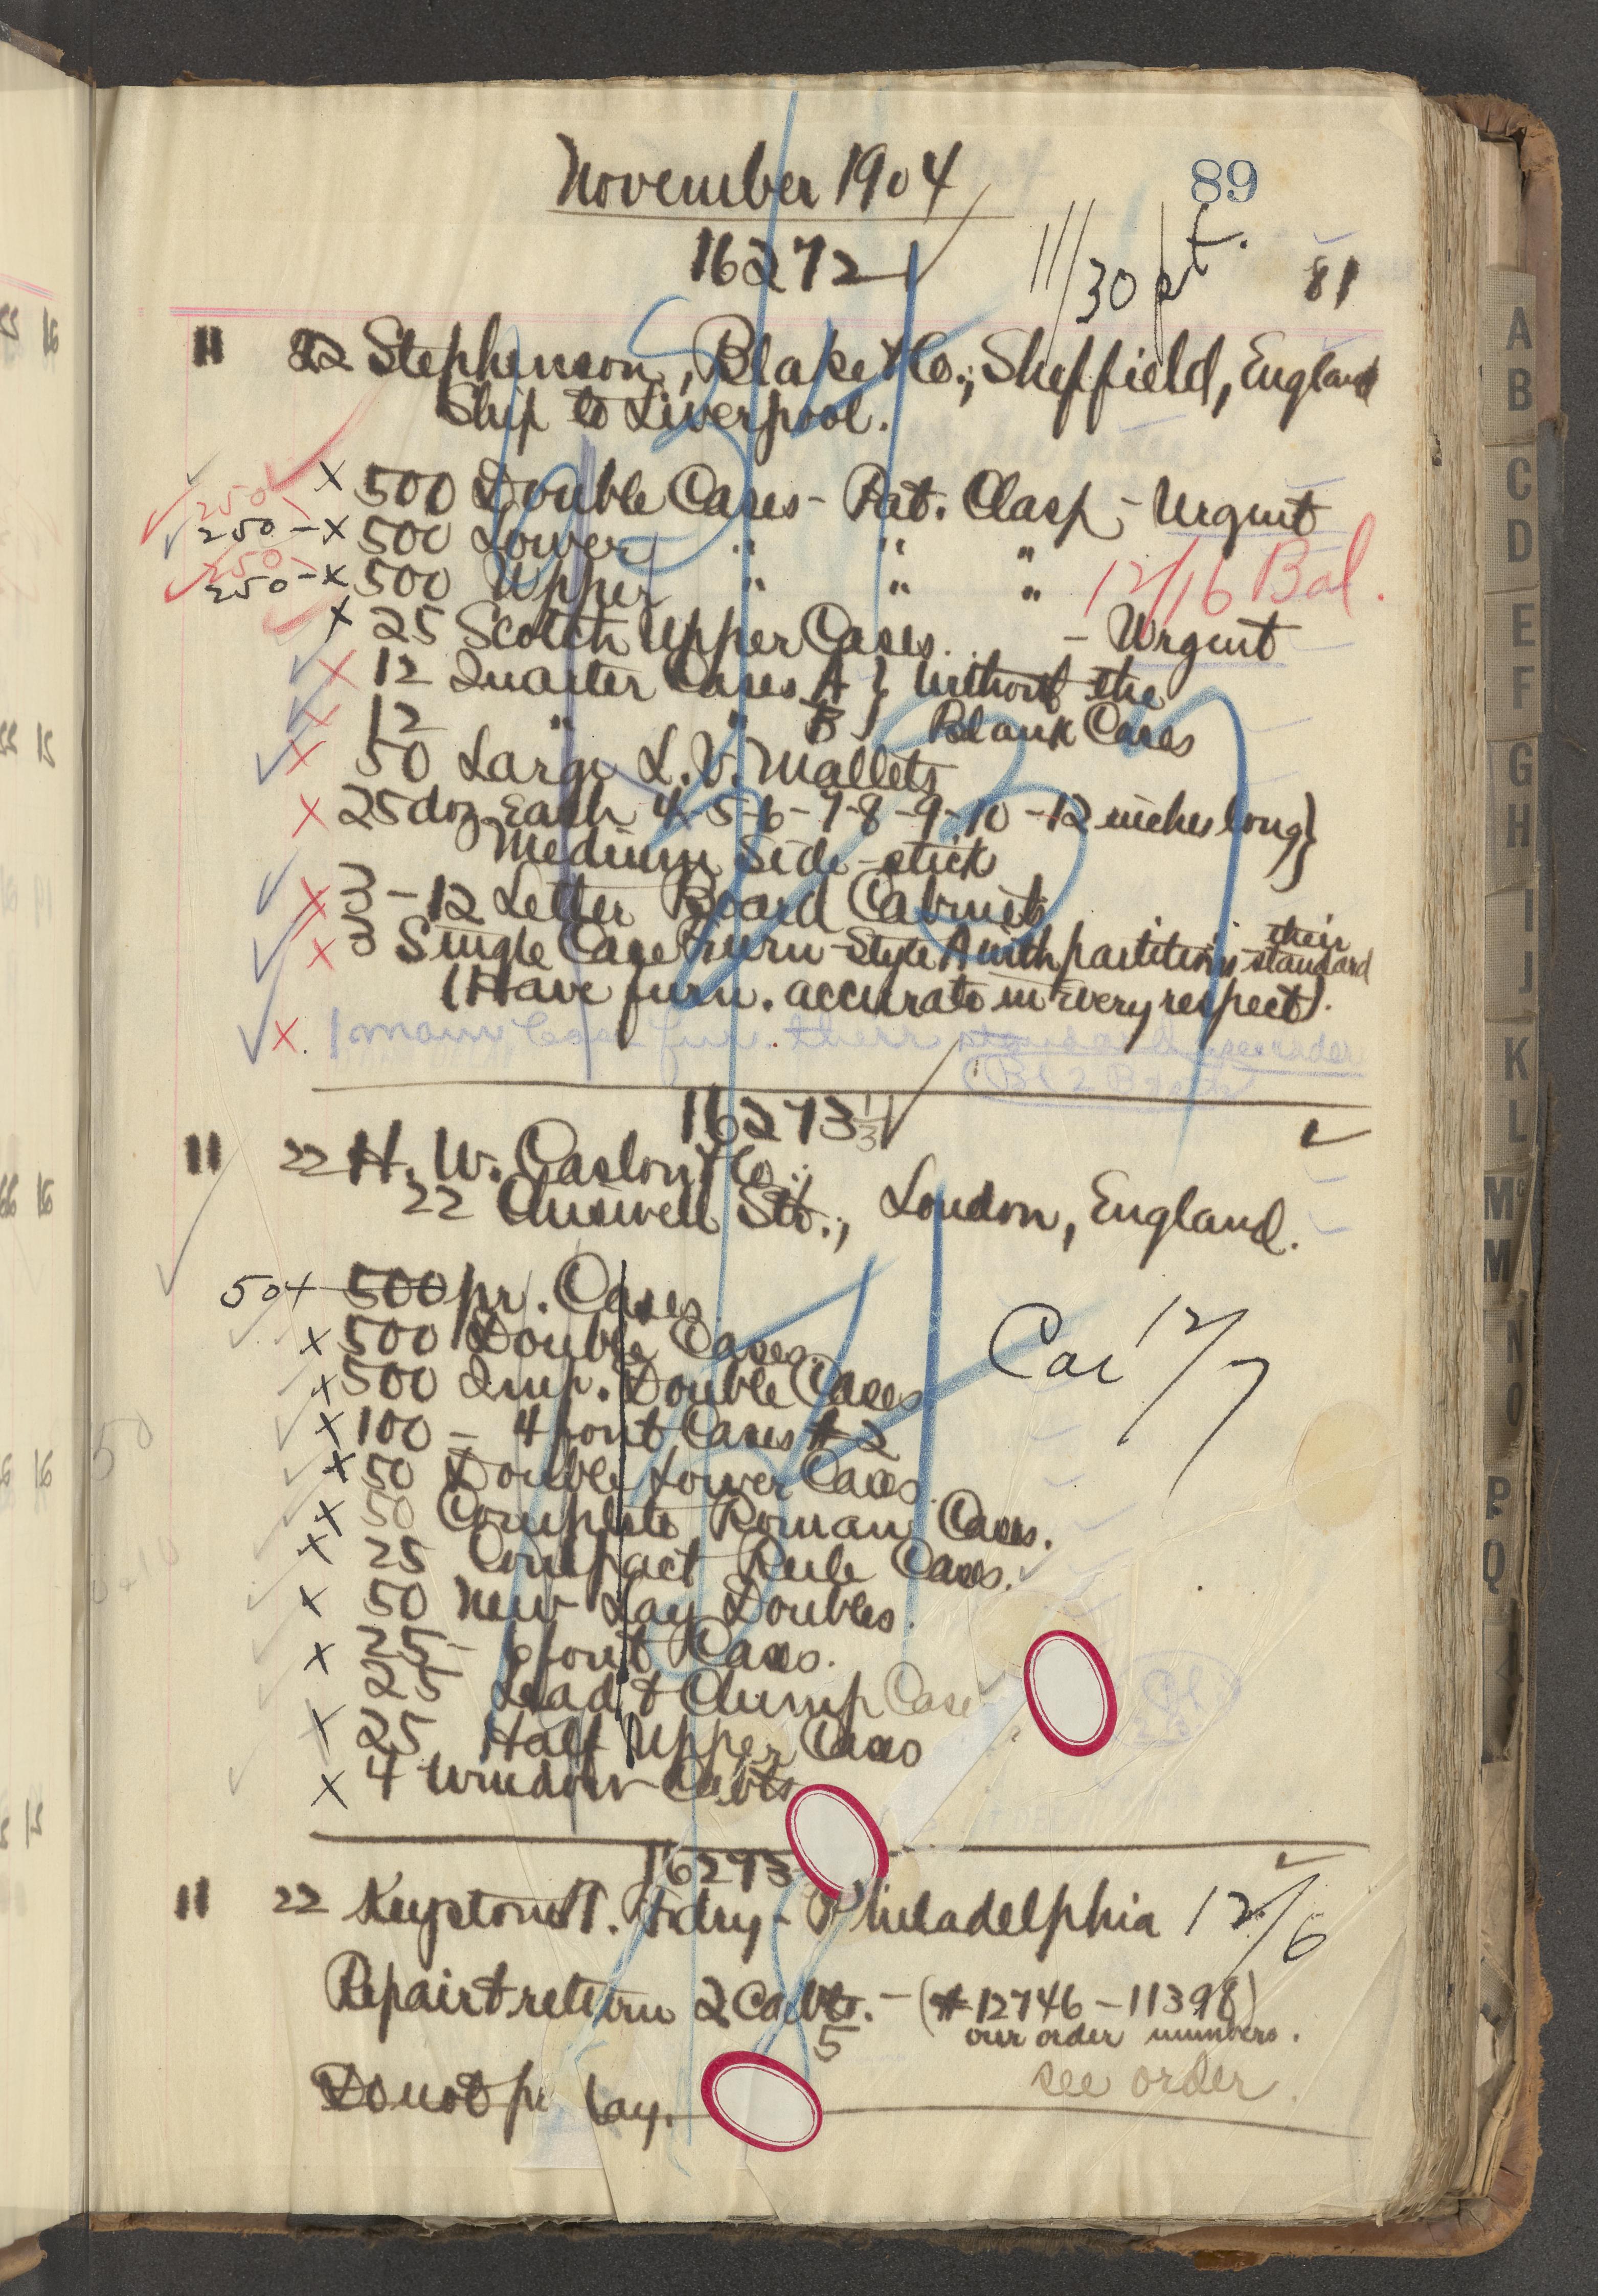 November 1904
89
16272
11/30 pt.
81
11 22 Stephenson, Blake & Co., Sheffield, England
Ship to Liverpool.
x 500 Double Cases - Pat. Clasp - Urgent
250
250 - x 500 Lower " " "
250
250 - x 500 Upper " " "
12/16 Bal.
x 25 Scotch Upper Cases. - Urgent
x 12 Quarter Cases A } without the
x 12 " " B } Blank Cases
x 50 Large L.V. Mallets
x 25 doz. Each 4-5-6-7-8-9-10-12 inches long }
Medium Side-stick
x 3 - 12 Letter Board Cabinets
x 3 Single Case Furn - Style A with partitions - their standard
(Have furn. accurate in every respect).
x. 1 main Case fur. their
16273 1/3
11 22 H. W. Caslon & Co.;
22 Chiswell St.; London, England.
50 x 500 pr. Cases
x 500 Double Cases.
x 500 Imp. Double Cases
Car 12/7
x 100 - 4 font Cases # 2
x 50 Double Lower Cases.
x 50 Complete Roman Cases.
x 25 Compact Rule Cases.
x 50 New Lay Doubles.
x 25 - 6 font Cases.
25 Lead & Clump Case
x 25 Half Upper Cases
x 4 Window Cabts
16273
11 22 Keystone T. Fdry - Philadelphia 12/6
Repair & return 2 Cabts. - (# 12746 - 11398)
5
our order numbers.
see order.
Do not lay.
A
B
C
D
E
F
G
H
I
J
K
L
Mc
M
N
O
P
Q